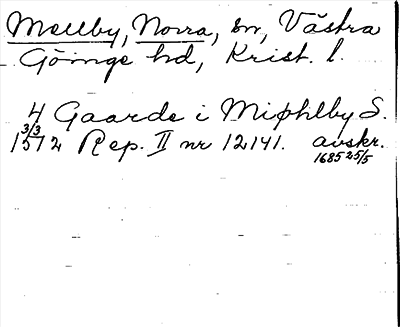 Mellby, Norra, sn, Västra
Göinge hd, Krist. l.
4 Gaarde i Miøhlby S.
1572 3/3 Rep. II nr 12141. avskr.
1685 25/5